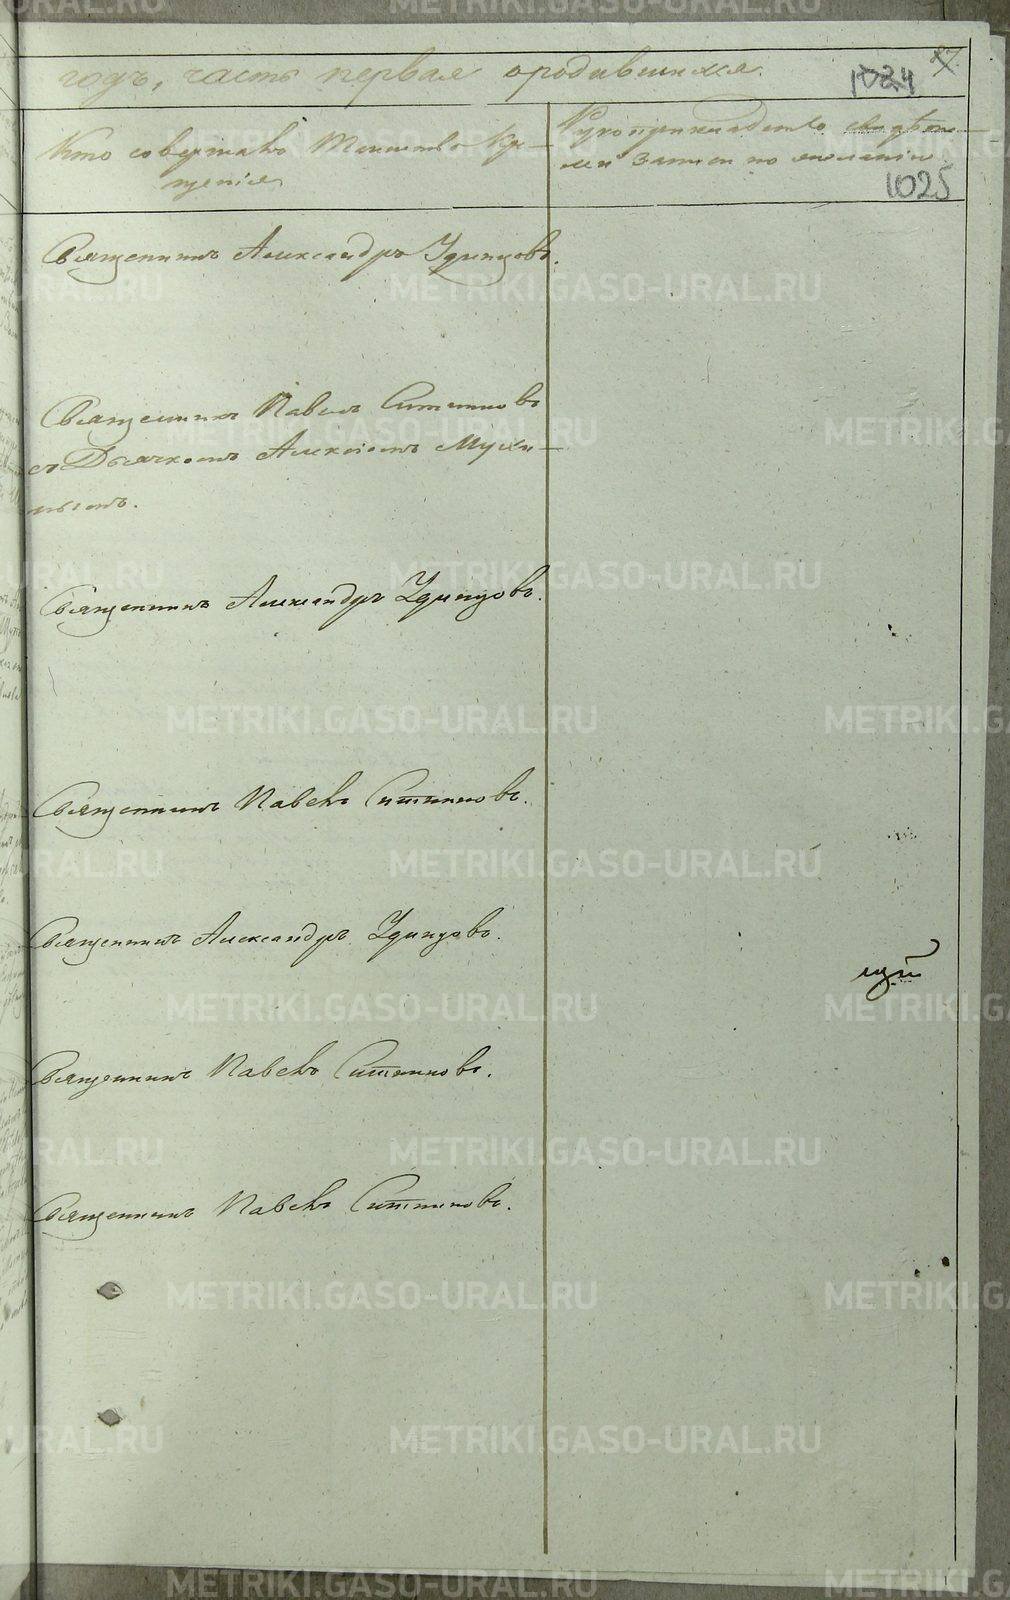 годъ, часть первая о родившихся.
87
1024
Кто совершалъ Таинство Кре-
щенія
Рукоприкладство свидѣте-
лей записи по желанію
1025
Священникъ Александръ Удинцовъ.
Священникъ Павелъ Ситниковъ
съ Дьячкомъ Алексіемъ Мухи-
нымъ.
Священникъ Александръ Удинцовъ.
Священникъ Павелъ Ситниковъ.
Священникъ Александръ Удинцовъ.
Священникъ Павелъ Ситниковъ.
Священникъ Павелъ Ситниковъ.
METRIKI.GASO-URAL.RU